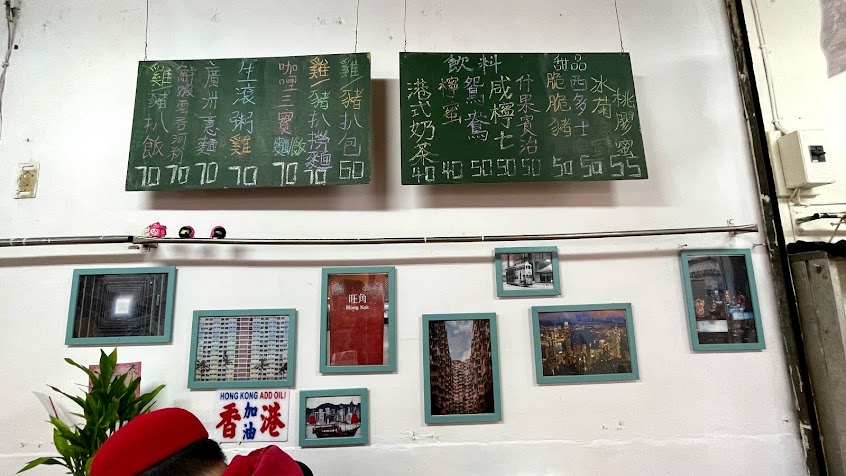 雞/豬扒飯
70
鮮蝦雲吞河粉
70
廣州意麵
70
生滾粥雞
70
咖哩三寶麵飯
70
雞/豬扒撈麵
70
雞/豬扒包
60
飲料
港式奶茶
40
檸蜜
40
鴛鴦
50
咸檸七
50
什果賓治
50
甜品
脆脆豬
50
西多士
50
冰菊
桃膠
55
旺角
Mong Kok
HONG KONG ADD OIL!
香加油港